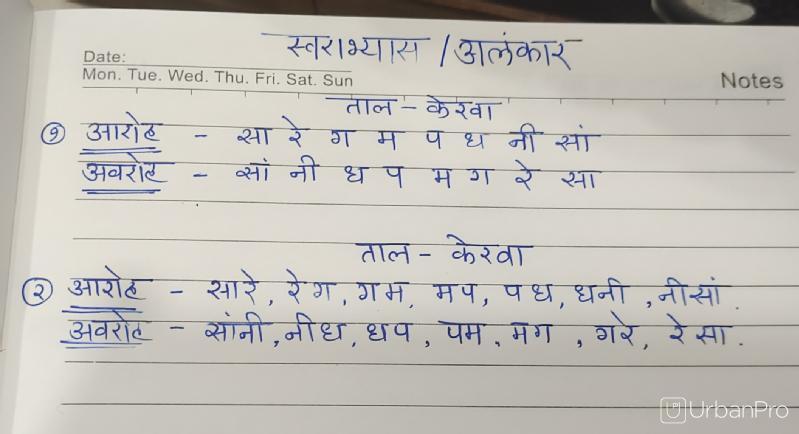 स्वराभ्यास / अलंकार
Date:
Mon. Tue. Wed. Thu. Fri. Sat. Sun
Notes
ताल - केरवा
१ आरोह - सा रे ग म प ध नी सां
अवरोह - सां नी ध प म ग रे सा
ताल - केरवा
२ आरोह - सारे, रेग, गम, मप, पध, धनी, नीसां.
अवरोह - सांनी, नीध, धप, पम, मग, गरे, रेसा.
UrbanPro